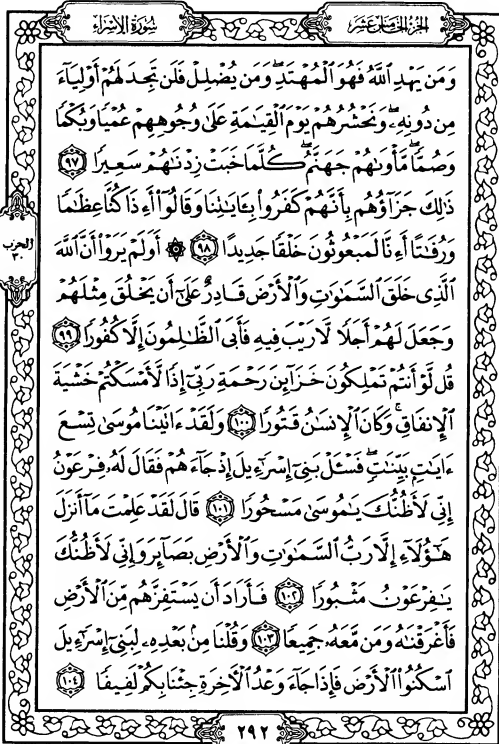 سُورَةُ الإِسْرَاءِ
الجُزْءُ الخَامِسَ عَشَرَ
وَمَن يَهْدِ ٱللَّهُ فَهُوَ ٱلْمُهْتَدِۖ وَمَن يُضْلِلْ فَلَن تَجِدَ لَهُمْ أَوْلِيَآءَ
مِن دُونِهِۦۖ وَنَحْشُرُهُمْ يَوْمَ ٱلْقِيَـٰمَةِ عَلَىٰ وُجُوهِهِمْ عُمْيًا وَبُكْمًا
وَصُمًّاۖ مَّأْوَىٰهُمْ جَهَنَّمُۖ كُلَّمَا خَبَتْ زِدْنَـٰهُمْ سَعِيرًا ٩٧
ذَٰلِكَ جَزَآؤُهُم بِأَنَّهُمْ كَفَرُوا۟ بِـَٔايَـٰتِنَا وَقَالُوٓا۟ أَءِذَا كُنَّا عِظَـٰمًا
وَرُفَـٰتًا أَءِنَّا لَمَبْعُوثُونَ خَلْقًا جَدِيدًا ٩٨ ۞ أَوَلَمْ يَرَوْا۟ أَنَّ ٱللَّهَ
ٱلَّذِى خَلَقَ ٱلسَّمَـٰوَٰتِ وَٱلْأَرْضَ قَادِرٌ عَلَىٰٓ أَن يَخْلُقَ مِثْلَهُمْ
وَجَعَلَ لَهُمْ أَجَلًا لَّا رَيْبَ فِيهِ فَأَبَى ٱلظَّـٰلِمُونَ إِلَّا كُفُورًا ٩٩
قُل لَّوْ أَنتُمْ تَمْلِكُونَ خَزَآئِنَ رَحْمَةِ رَبِّىٓ إِذًا لَّأَمْسَكْتُمْ خَشْيَةَ
ٱلْإِنفَاقِۚ وَكَانَ ٱلْإِنسَـٰنُ قَتُورًا ١٠٠ وَلَقَدْ ءَاتَيْنَا مُوسَىٰ تِسْعَ
ءَايَـٰتٍۭ بَيِّنَـٰتٍۖ فَسْـَٔلْ بَنِىٓ إِسْرَٰٓءِيلَ إِذْ جَآءَهُمْ فَقَالَ لَهُۥ فِرْعَوْنُ
إِنِّى لَأَظُنُّكَ يَـٰمُوسَىٰ مَسْحُورًا ١٠١ قَالَ لَقَدْ عَلِمْتَ مَآ أَنزَلَ
هَـٰٓؤُلَآءِ إِلَّا رَبُّ ٱلسَّمَـٰوَٰتِ وَٱلْأَرْضِ بَصَآئِرَ وَإِنِّى لَأَظُنُّكَ
يَـٰفِرْعَوْنُ مَثْبُورًا ١٠٢ فَأَرَادَ أَن يَسْتَفِزَّهُم مِّنَ ٱلْأَرْضِ
فَأَغْرَقْنَـٰهُ وَمَن مَّعَهُۥ جَمِيعًا ١٠٣ وَقُلْنَا مِنۢ بَعْدِهِۦ لِبَنِىٓ إِسْرَٰٓءِيلَ
ٱسْكُنُوا۟ ٱلْأَرْضَ فَإِذَا جَآءَ وَعْدُ ٱلْـَٔاخِرَةِ جِئْنَا بِكُمْ لَفِيفًا ١٠٤
الحزب
٣٠
٢٩٢